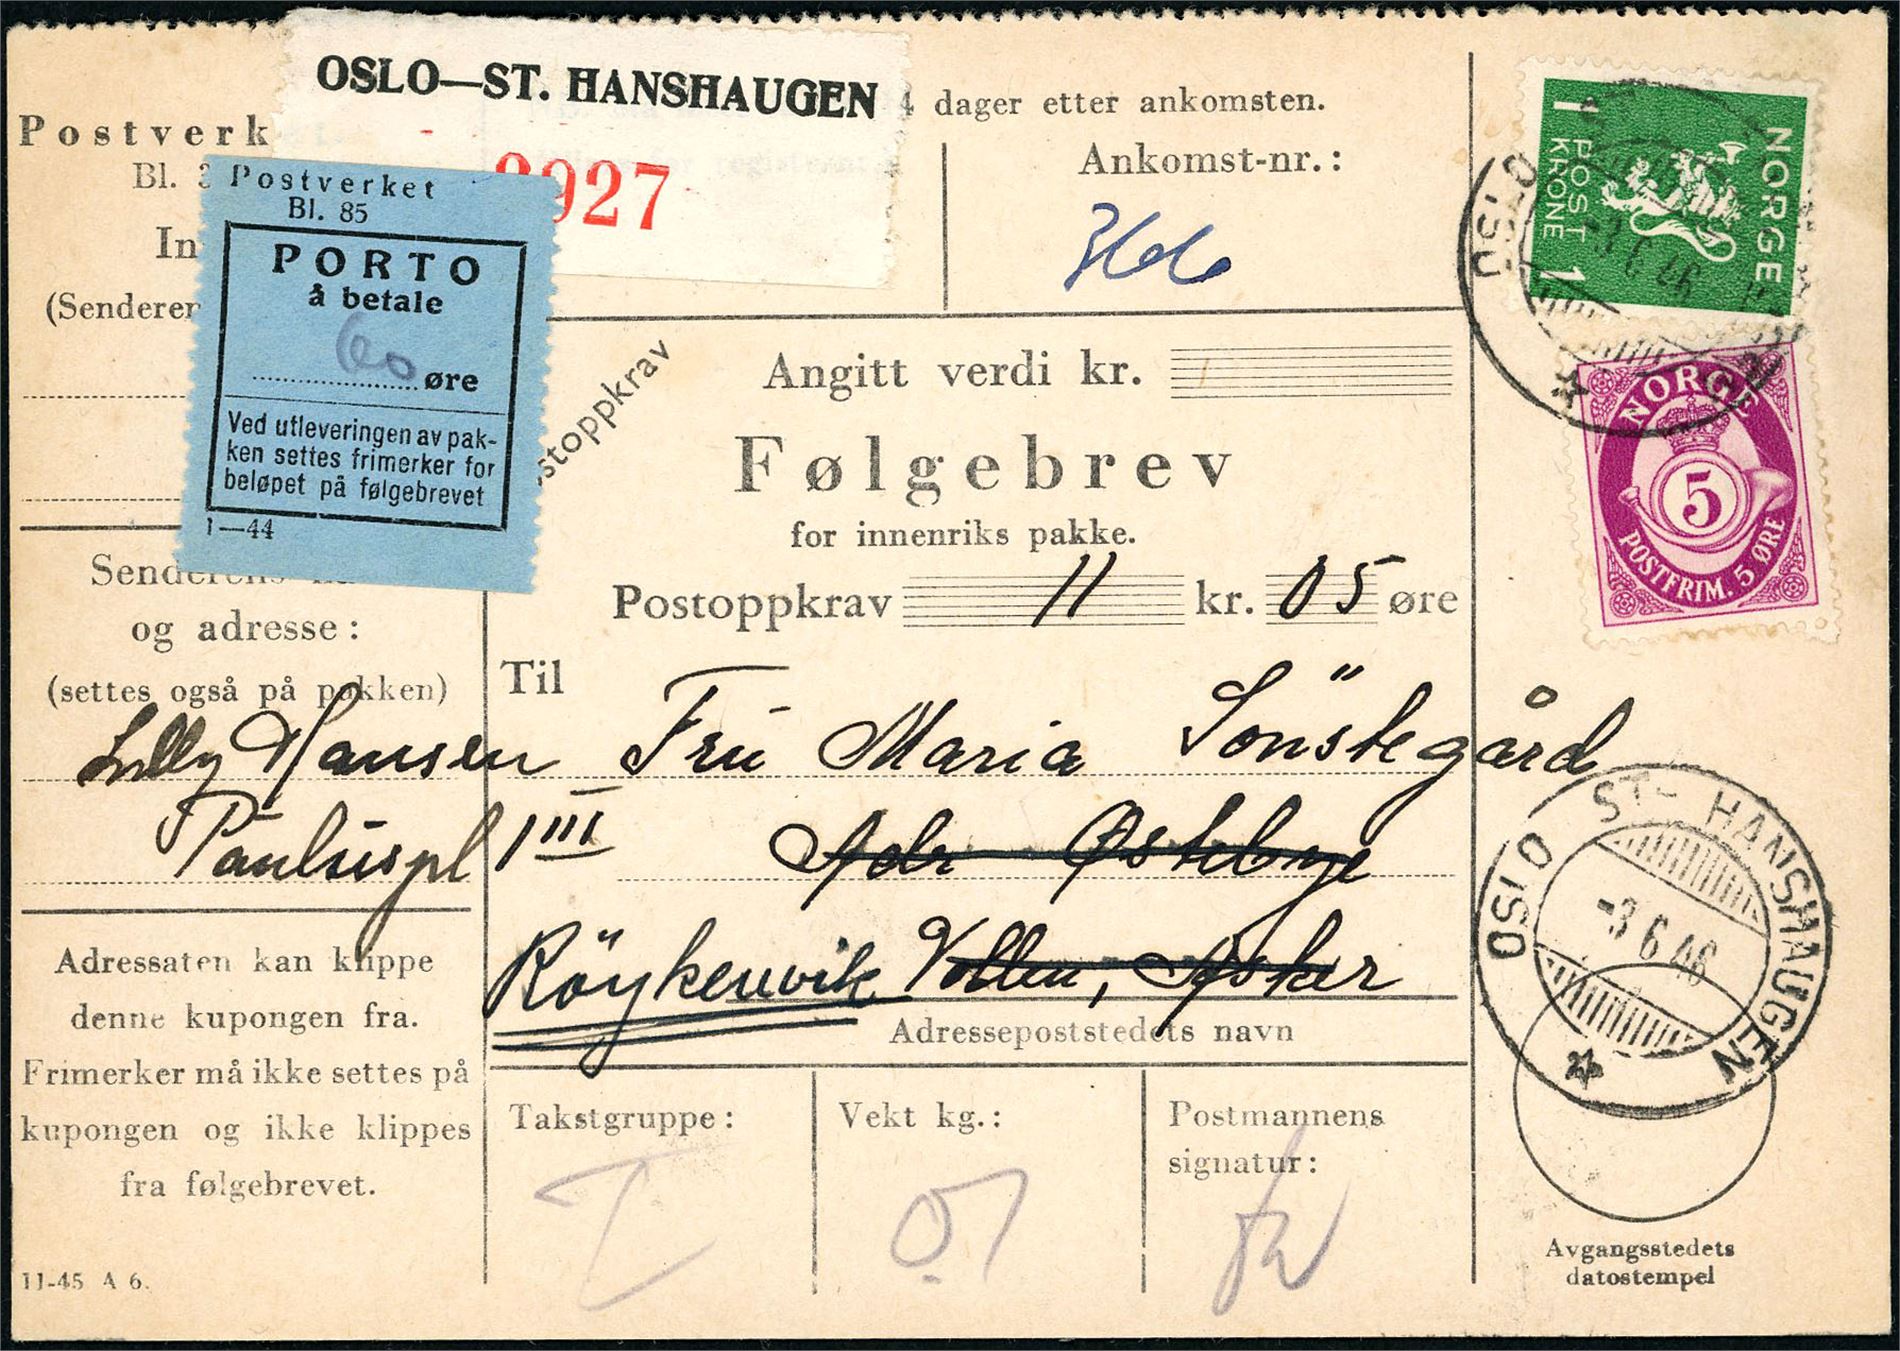 OSLO—ST. HANSHAUGEN
4 dager etter ankomsten.
Postverk
Bl.
927
Ankomst-nr.:
Postverket
Bl. 85
PORTO
å betale
60 øre
Ved utleveringen av pak-
ken settes frimerker for
beløpet på følgebrevet
1—44
In
(Senderen
stoppkrav
Angitt verdi kr.
Følgebrev
for innenriks pakke.
Postoppkrav 11 kr. 05 øre
Senderens
og adresse:
(settes også på pakken)
Lilly Hansen
Pauluspl 1 III
Til Frü Maria Sönstegård
Adr Østebye
Röykenvik Vollen, Asker
Adressepoststedets navn
Adressaten kan klippe
denne kupongen fra.
Frimerker må ikke settes på
kupongen og ikke klippes
fra følgebrevet.
11-45 A 6.
Takstgruppe:
I
Vekt kg.:
Postmannens
signatur:
NORGE
POST
1 KRONE 1
OSLO
-3 6 46
NORGE
5
POSTFRIM. 5 ØRE
OSLO ST. HANSHAUGEN
-3 6 46
Avgangsstedets
datostempel